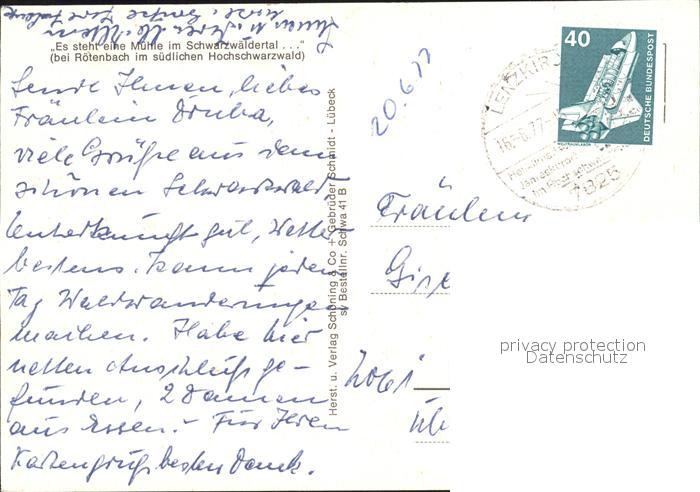 „Es steht eine Mühle im Schwarzwäldertal . . .“
(bei Rötenbach im südlichen Hochschwarzwald)
Sende Ihnen, liebes
Fräulein
viele Grüße aus dem
schönen Schwarzwald
Unterkunft gut, Wetter
bestens. Kann jeden
Tag Waldwanderungen
machen. Habe hier
netten Anschluß ge-
funden, 2 Damen
aus Essen. - Für Ihren
Kartengruß besten Dank.
Herst. u. Verlag Schöning & Co + Gebrüder Schmidt - Lübeck
sy Bestellnr. Schwa 41 B
20.6.77
40
DEUTSCHE BUNDESPOST
WELTRAUMLABOR
LENZKIRCH
16.-6.77
7825
Fräulein
privacy protection
Datenschutz